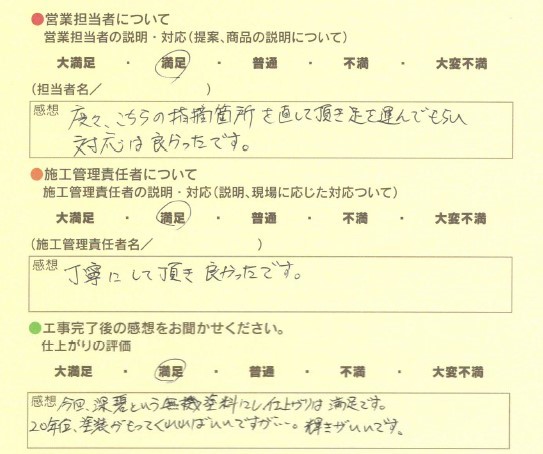 ●営業担当者について
営業担当者の説明・対応(提案、商品の説明について)
大満足 ・ 満足 ・ 普通 ・ 不満 ・ 大変不満
(担当者名／ )
感想 度々、こちらの指摘箇所を直して頂き足を運んでもらい
対応は良かったです。
●施工管理責任者について
施工管理責任者の説明・対応(説明、現場に応じた対応ついて)
大満足 ・ 満足 ・ 普通 ・ 不満 ・ 大変不満
(施工管理責任者名／ )
感想 丁寧にして頂き良かったです。
●工事完了後の感想をお聞かせください。
仕上がりの評価
大満足 ・ 満足 ・ 普通 ・ 不満 ・ 大変不満
感想 今回、深碧という無機塗料にし仕上がりは満足です。
20年位、塗装がもってくれればいいですが…。輝きがいいです。